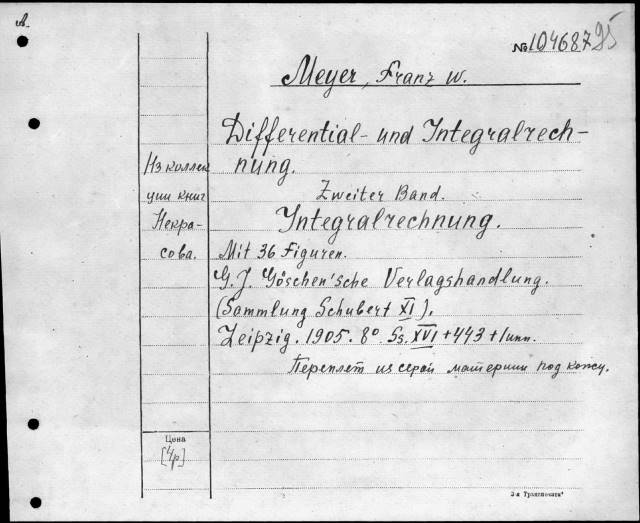 A.
№ 10468795
Meyer, Franz W.
Differential- und Integralrech-
nung.
Zweiter Band.
Integralrechnung.
Mit 36 Figuren.
G. J. Göschen'sche Verlagshandlung.
(Sammlung Schubert XI).
Leipzig. 1905. 8° Ss. XVI + 443 + 1 unn.
Переплет из серой материи под кожу.
Из коллек
ции книг
Некра-
сова.
Цена
[4р]